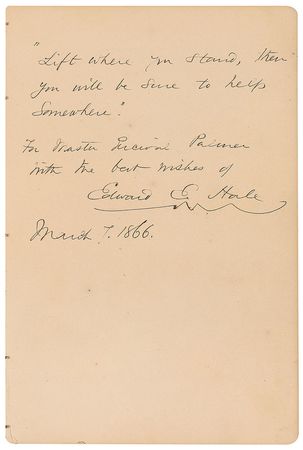 "Lift where you stand, then
you will be sure to help
somewhere".
For Master Palmer
with the best wishes of
Edward E. Hale
March 7. 1866.